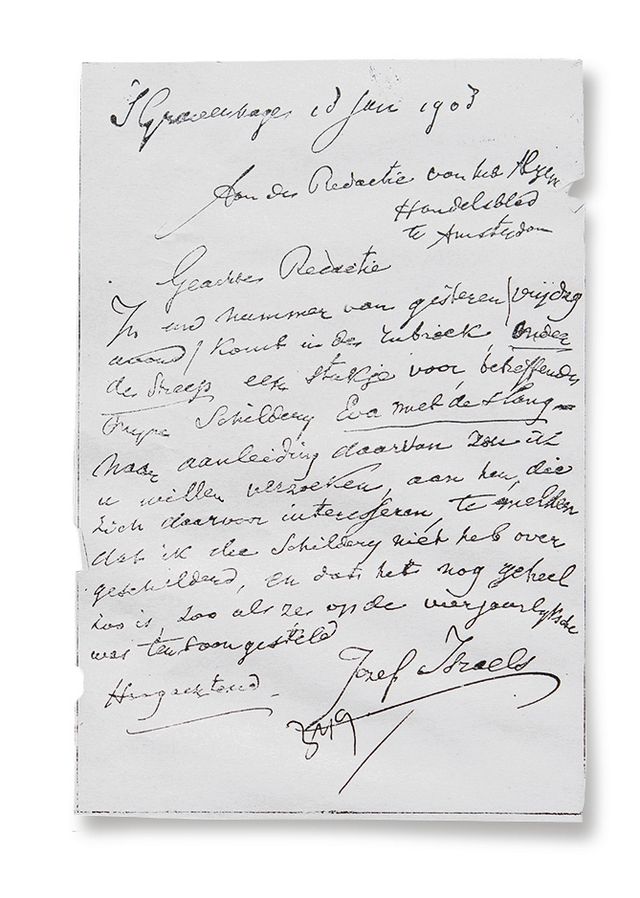 'S Gravenhage 18 Jan 1903
Aan de Redactie van het Algem
Handelsblad
te Amsterdam
Geachte Redactie
In uw nummer van gisteren / vrijdag
avond / komt in de rubriek, Onder
de Streep een stukje voor betreffende
myne Schildery Eva met de Slang –
Naar aanleiding daarvan zou ik
u willen verzoeken, aan hen, die
zich daarvoor interesseren, te melden
dat ik die Schildery niet heb over
geschilderd, en dat het nog geheel
zoo is, zoo als ze op de vierjaarlyksche
was tentoongesteld
Hoogachtend
Jozef Israels